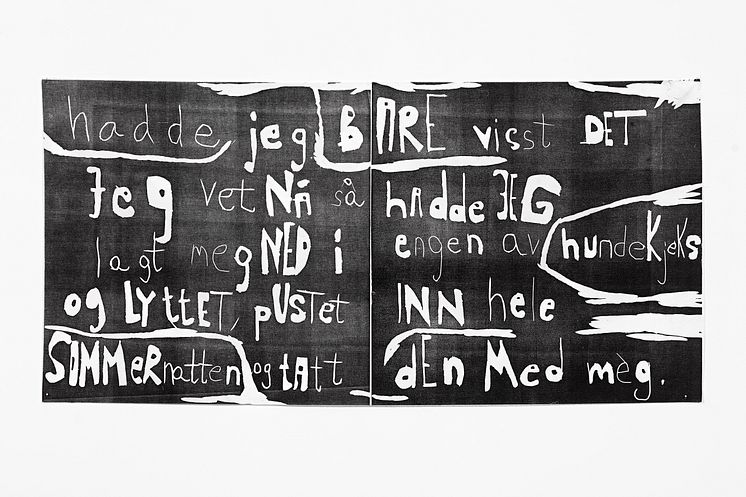 hadde jeg BARE visst DET
Jeg vet NÅ så hAdde JEG
lagt meg NED i engen av hundeKjeKs
og LYttET, pUSTet INN hele
SOMMeRnatten og tAtt dEn Med mèg.